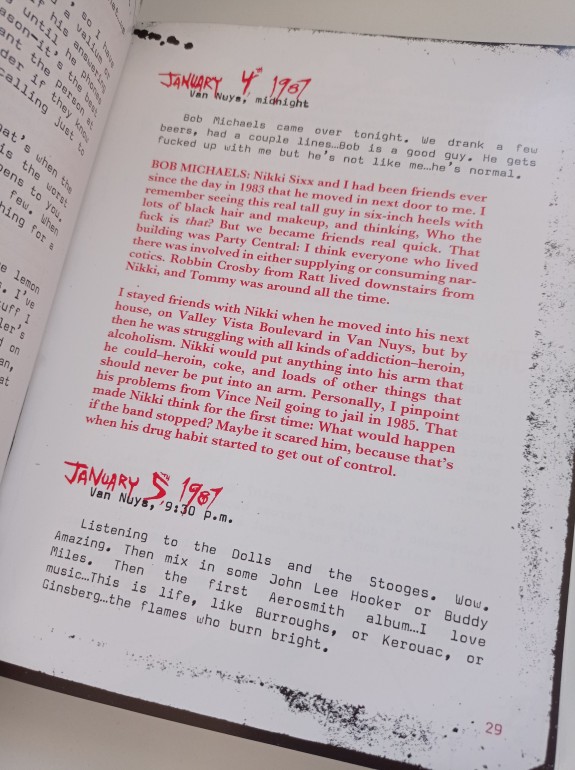 , so I have
a valium or
f his answering
until he phones
ason—it's the best
ant the person at
der if they know
calling just to
at's when the
is the worst
pens to you.
few. When
hing for a
e lemon
. I've
uff I
ler's
d on
an,
at
JANUARY 4th 1987
Van Nuys, midnight
Bob Michaels came over tonight. We drank a few
beers, had a couple lines…Bob is a good guy. He gets
fucked up with me but he's not like me…he's normal.
BOB MICHAELS: Nikki Sixx and I had been friends ever
since the day in 1983 that he moved in next door to me. I
remember seeing this real tall guy in six-inch heels with
lots of black hair and makeup, and thinking, Who the
fuck is that? But we became friends real quick. That
building was Party Central: I think everyone who lived
there was involved in either supplying or consuming nar-
cotics. Robbin Crosby from Ratt lived downstairs from
Nikki, and Tommy was around all the time.
I stayed friends with Nikki when he moved into his next
house, on Valley Vista Boulevard in Van Nuys, but by
then he was struggling with all kinds of addiction–heroin,
alcoholism. Nikki would put anything into his arm that
he could–heroin, coke, and loads of other things that
should never be put into an arm. Personally, I pinpoint
his problems from Vince Neil going to jail in 1985. That
made Nikki think for the first time: What would happen
if the band stopped? Maybe it scared him, because that's
when his drug habit started to get out of control.
JANUARY 5, 1987
Van Nuys, 9:30 p.m.
Listening to the Dolls and the Stooges. Wow.
Amazing. Then mix in some John Lee Hooker or Buddy
Miles. Then the first Aerosmith album…I love
music…This is life, like Burroughs, or Kerouac, or
Ginsberg…the flames who burn bright.
29